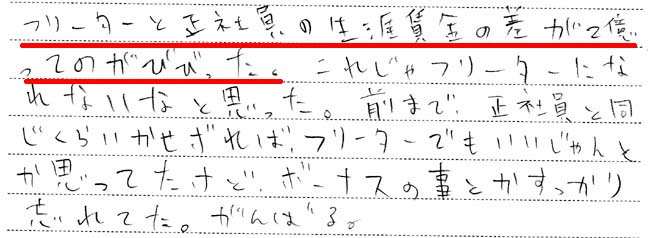 フリーターと正社員の生涯賃金の差が2億
ってのがびびった。これじゃフリーターにな
れないなと思った。前まで、正社員と同
じくらいかせぎれば、フリーターでもいいじゃんと
か思ってたけど、ボーナスの事とかすっかり
忘れてた。がんばる。